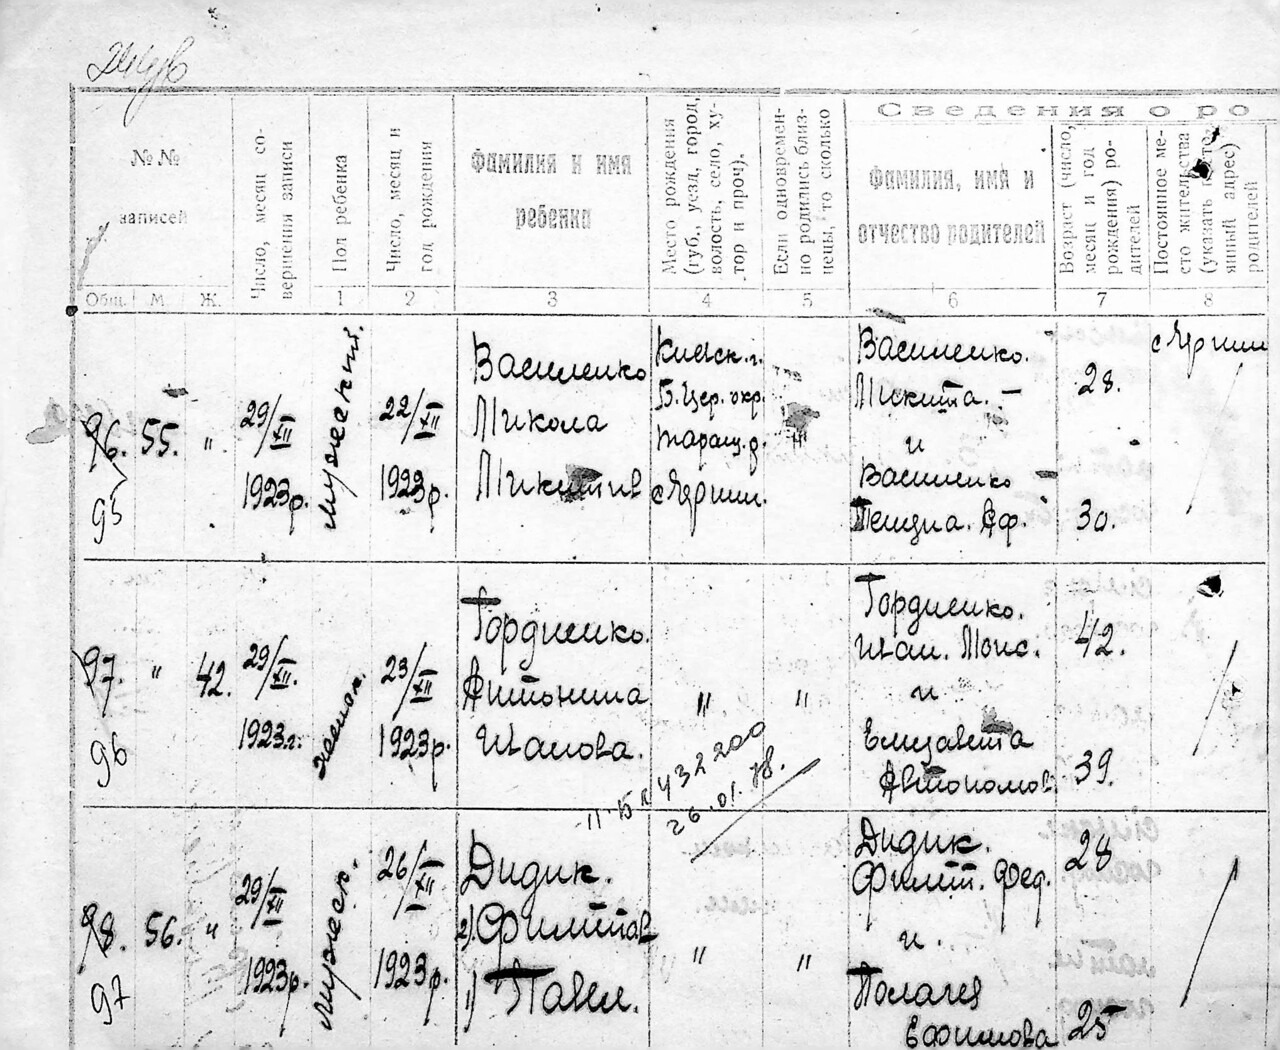 Сведения о ро
№ №
записей
Общ.
М.
Ж.
Число, месяц со-
вершения записи
Пол ребенка
1
Число, месяц и
год рождения
2
Фамилия и имя
ребенка
3
Место рождения
(губ., уезд, город,
волость, село, ху-
тор и проч).
4
Если одновремен-
но родились близ-
нецы, то сколько
5
Фамилия, имя и
отчество родителей
6
Возраст (число,
месяц и год
рождения) ро-
дителей
7
Постоянное ме-
сто жительства
(указать
янный адрес)
родителей
8
96.
95
55.
"
29/XII
1923р.
мужеский.
22/XII
1923р.
Василенко
Микола
Микитив
Киевск. г.
Б. Цер. окр.
Таращ. р.
Василенко.
Микита. –
и
Василенко
28.
30.
97.
96
"
42.
29/XII.
1923.г.
23/XII
1923р.
Гордиенко.
Антонина
Иванова.
"
"
Гордиенко.
Иван. Моис.
и
Елизавета
Автономов.
42.
39.
432200
26.01.78.
98.
97
56.
"
29/XII
1923р.
мужеск.
26/XII
1923р.
Дидик.
2). Филиппов
1) Павел.
"
"
Дидик.
Филип. Фед.
и.
Полагея
Ефимова
28
25